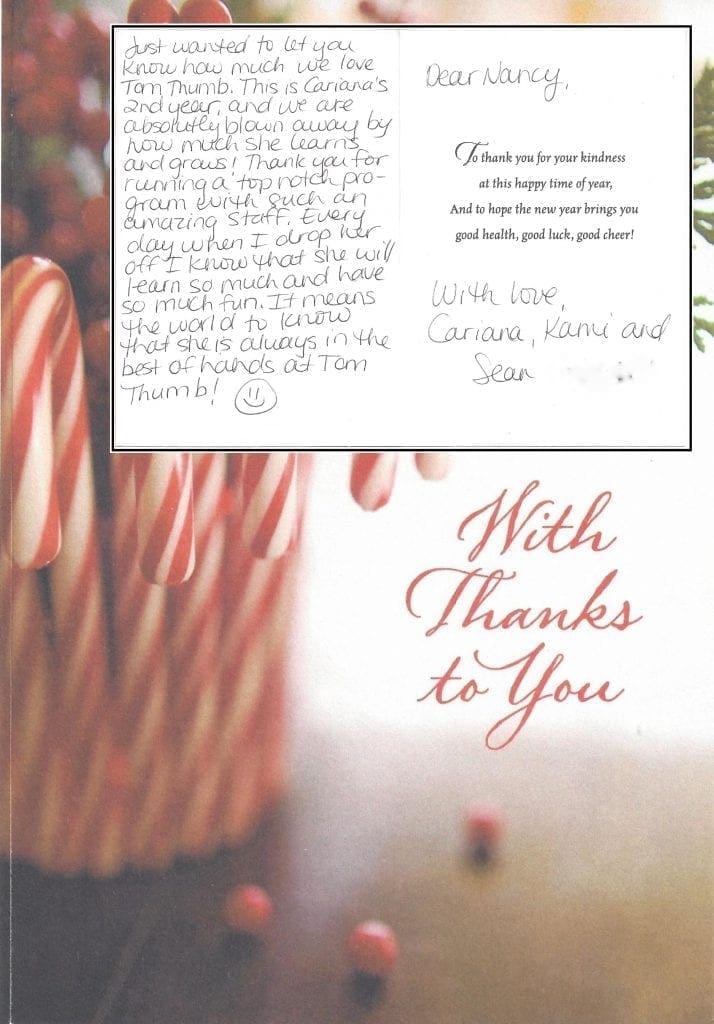 Just wanted to let you
know how much we love
Tom Thumb. This is Cariana's
2nd year, and we are
absolutly blown away by
how much she learns
and grows! Thank you for
running a top notch pro-
gram with such an
amazing staff. Every
day when I drop her
off I know that she will
learn so much and have
so much fun. It means
the world to know
that she is always in the
best of hands at Tom
Thumb!
Dear Nancy,
To thank you for your kindness
at this happy time of year,
And to hope the new year brings you
good health, good luck, good cheer!
With love,
Cariana, Kami and
Sean
With
Thanks
to You